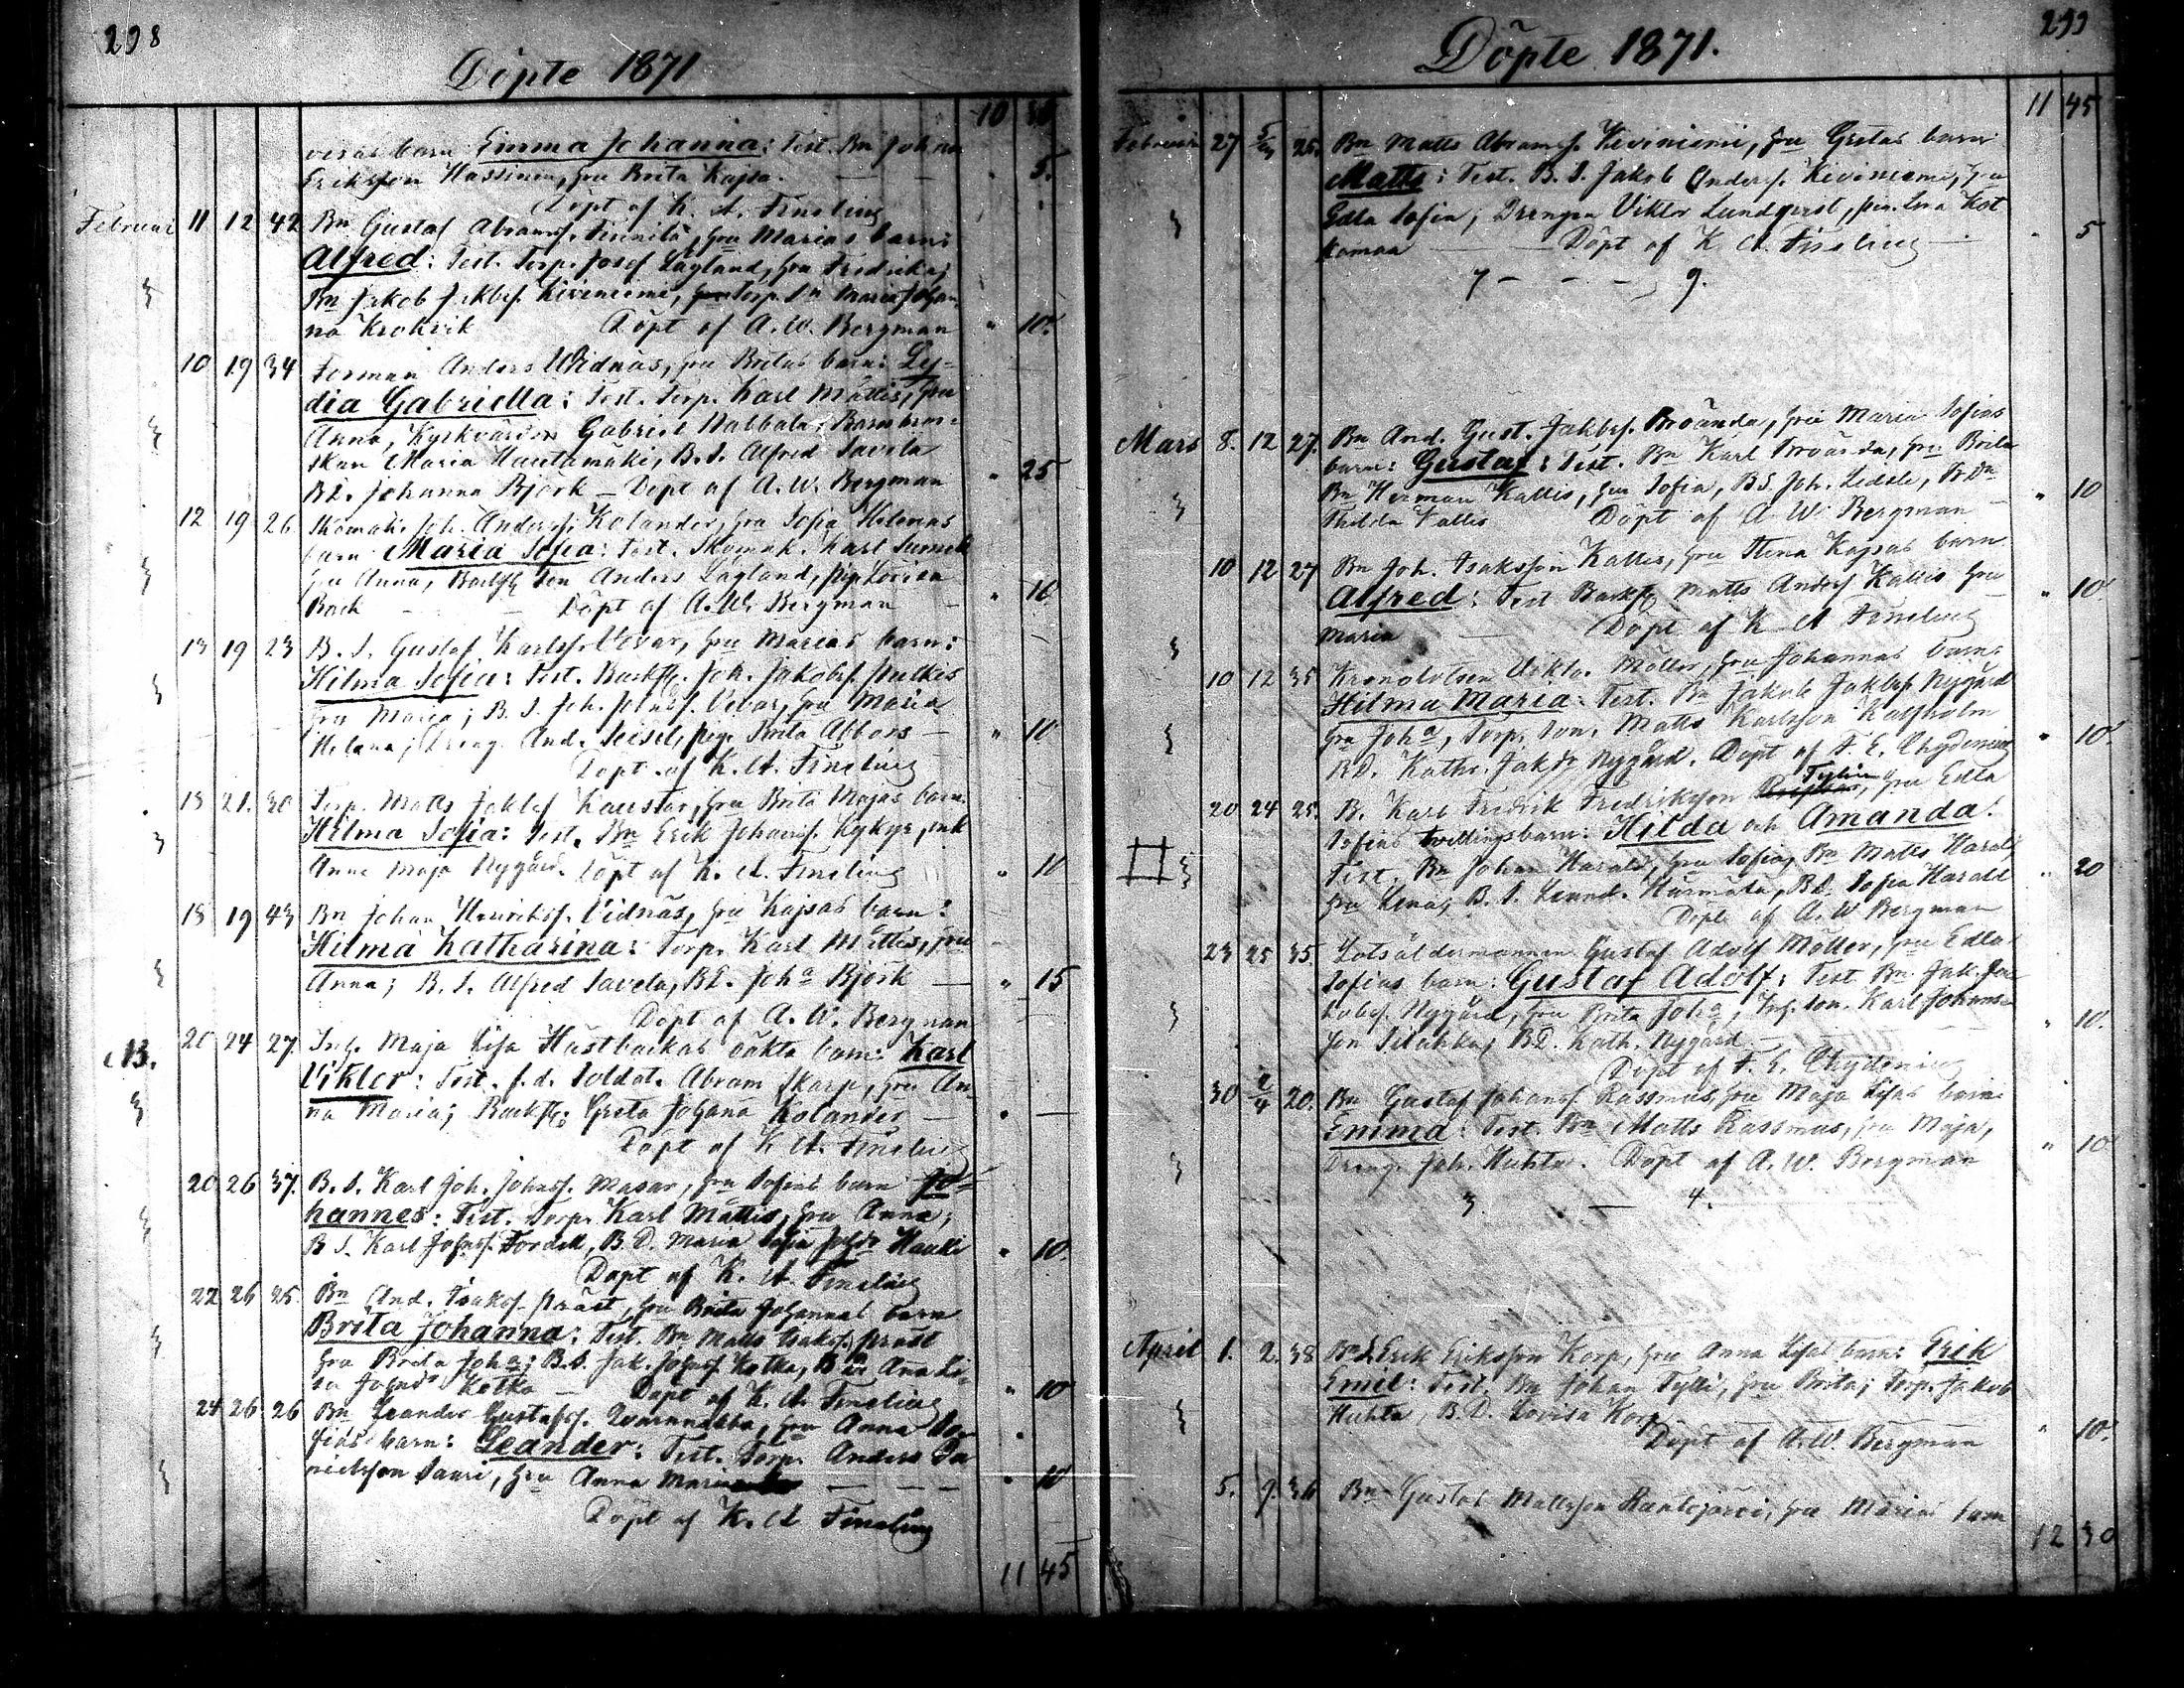 298
Döpte 1871
10
barn Emma Johanna: Test. Bn Johan
Eriksson Hassinen, hru Brita Kajsa. — — " 5.
Döpt af K. A. Finsling
Februari 11 12 42 Bn Gustaf Abramss. hru Marias barn:
Alfred: Test. Torp. Josef Lågland, hru Fredrika;
Bn Jakob Jakbss. Kiviniemi, Torp. Dr Maria Johan-
na Krokvik Döpt af A. W. Bergman " 10.
10 19 34 Forman Anders Widnäs, hru Britas barn: Ly-
dia Gabriella: Test. Torp. Karl Mattis, hru
Anna, Kyrkvärden Gabriel Nabbala, Barnmor-
skan Maria Hautamäki, B. S. Alfred Savela
BD. Johanna Björk — Döpt af A. W. Bergman " 25
12 19 26 Skomak. Joh. Anderss. Kolander, hru Sofia Helenas
barn Maria Sofia: Test. Skomak. Karl
hru Anna, Anders Lågland, pig. Lovisa
Back — — Döpt af A. W. Bergman — " 10
13 19 23 B. S. Gustaf Karlss. Vevar, hru Marias barn:
Hilma Sofia: Test. Backst. Joh. Jakobss. Pulkis
hru Maria; B. S. Joh. Johnss. Vevar, hru Maria
Helena; Dreng. And. Seisel, pig. Brita Abbors — " 10
Döpt af K. A. Finsling
18 21. 30 Torp. Matts Jakbss Kaustar, hru Brita Majas barn:
Hilma Sofia: Test. Bn Erik Johanss. Kykyr, enk
Anna Maja Nygård. Döpt af K. A. Finsling " 10
18 19 43 Bn Johan Henrikss. Vidnäs, hru Kajsas barn:
Hilma Katharina: Torp. Karl Mattis, hru
Anna; B. S. Alfred Savela, BD. Joha Björk — " 15
Döpt af A. W. Bergman
20 24 27. Inh. Maja Lisa Hästbackas oäkta barn: Karl
Viktor: Test. f. d. Soldat. Abram Skarp, hru An-
na Maria; Backst. Greta Johana Kolander — " —
Döpt af K. A. Finsling
20 26 37. B. S. Karl Joh. Johnss. Masar, hru Sofias barn Jo-
hannes: Test. Torp. Karl Mattis, hru Anna;
B. S. Karl Johnss. Fordell, B. D. Maria Sofia Hauki " 10.
Döpt af K. A. Finsling
22 26 25. Bn And. Isakss. Präst, hru Brita Johannas barn
Brita Johanna: Test. Bn Matts Isakss. Präst
hru Brita Joha; B. S. Jak. Johnss Kotka, Anna Li-
sa Kotka — Döpt af K. A. Finsling " 10
24 26 26 Bn Leander Gustafss. hru Anna So-
fias barn: Leander: Test. Torp. Anders Da-
nielsson Sauri, hru Anna Maria — — — " 10
Döpt af K. A. Finsling
11 45
299
Döpte 1871.
11 45
Februari 27 5/3 26. Bn Matts Abramss. Kiviniemi, hru Gretas barn
Matts: Test. B. S. Jakob Anderss. Kiviniemi, hru
Edla Sofia; Drengen Viktor Lundqvist, pin. Lena Kot
kamaa — — Döpt af K. A. Finsling — " 5
7 — — — 9.
Mars 8. 12 27. Bn And. Gust. Jakbss. Broända, hru Maria Sofias
barn: Gustaf: Test. Bn Karl Broända, hru Brita
Bn Herman Kallis, hru Sofia, BS. Joh.
Thilda Kallis Döpt af A. W. Bergman — " 10
10 12 27 Bn Joh. Isaksson Kallis, hru Stina Kajsas barn
Alfred: Test Backst. Matts Anderss Kallis hru
Maria — Döpt af K A Finsling " 10.
10 12 35 Kronolotsen Viktor Möller, hru Johannas barn:
Hilma Maria: Test. Bn Jakob Jakbss. Nygård
hru Joha, Torp. son, Matts Karlsson Kalfholm
BD. Kathr. Nygård. Döpt af F. E. Chydenius " 10.
20 24 25. B. Karl Fredrik Fredriksson hru Edla
Sofias tvillingsbarn: Hilda och Amanda:
Test. Bn Johan Harald, hru Sofia, Bn Matts Harald,
hru Lena, B. S. Leand. Härmälä, BD. Sofia Harald " 20
Döpte af A. W Bergman
23 25 35. Lotsåldermannen Gustaf Adolf Möller, hru Edla
Sofias barn: Gustaf Adolf: Test Bn Jak. Ja-
kobss. Nygård, hru Brita Joha, Inh. son. Karl Johans-
son BD. Kath. Nygård. — " 10.
Döpt af F. E. Chydenius
30 2/4 20. Bn Gustaf Johanss Rassmus, hru Maja Lisas barn
Emma: Test. Bn Matts Rassmus, hru Maja,
Dreng. Joh. Huhta. Döpt af A. W. Bergman " 10
3. — 4.
April 1. 2. 38 Erik Eriksson Korp, hru Anna Lisas barn: Erik
Emil: Test. Bn Johan Tylli, hru Brita; Torp. Jakob
Huhta, B. D. Lovisa Korp
Döpt af A. W. Bergman " 10.
5. 9. 36 Bn Gustaf Mattsson Rantajärvi, hru Marias barn
12 30